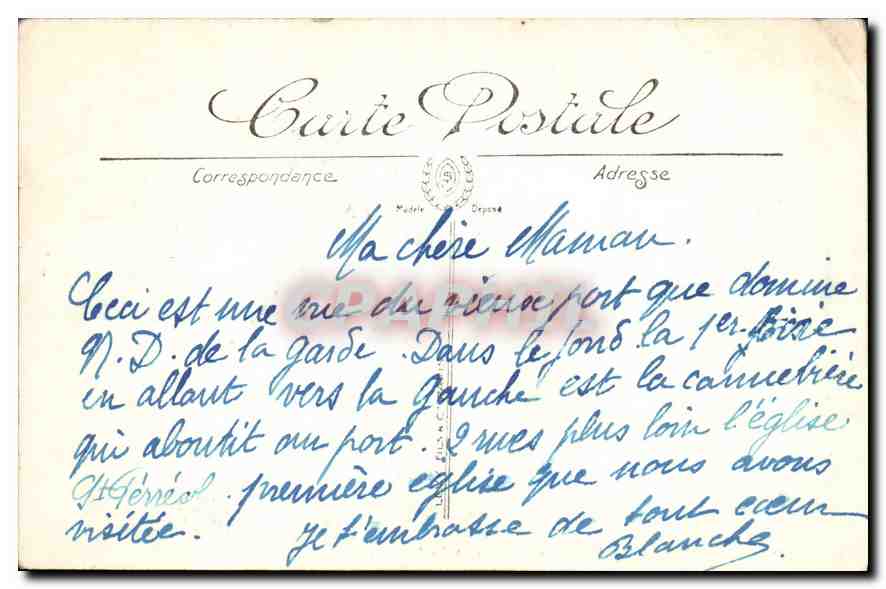 Carte Postale
Correspondance Adresse
Modèle Déposé
Ma chère Maman.
Ceci est une vue du vieux port que domine
N. D. de la garde. Dans le fond la 1er
en allant vers la gauche est la cannebière
qui aboutit au port. 2 rues plus loin l'église
St Férréol. première église que nous avons
visitée. Je t'embrasse de tout cœur
Blanche